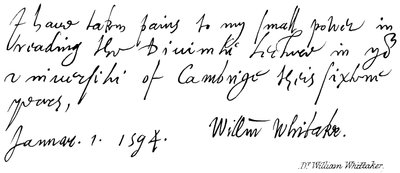 I have taken pains to my small power in
reading the Divinitie lecture in yor
vniversitie of Cambrige theis sixtene
years,
Januar. 1. 1594. Willm Whitaker.
Dr. William Whittaker.